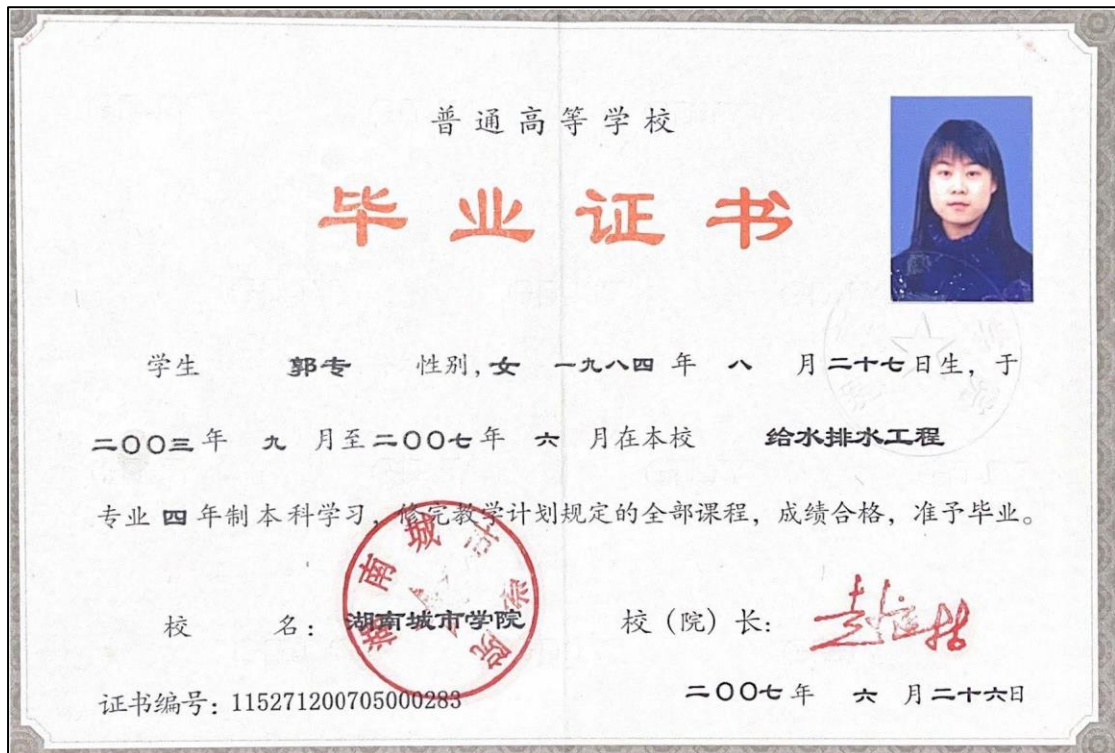 普通高等学校
毕业证书
学生 郭专 性别,女 一九八四年 八 月二十七日生,于
二〇〇三年 九 月至二〇〇七年 六 月在本校 给水排水工程
专业 四 年制本科学习,修完教学计划规定的全部课程,成绩合格,准予毕业。
湖南城市学院
校 名:湖南城市学院 校(院)长:
证书编号:115271200705000283 二〇〇七年 六 月二十六日